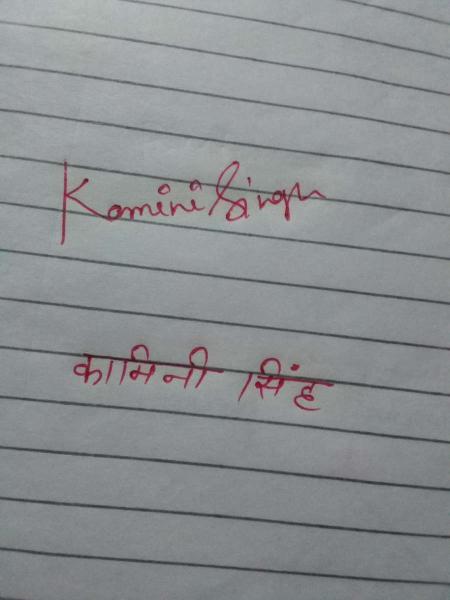 Kamini Singh
कामिनी सिंह